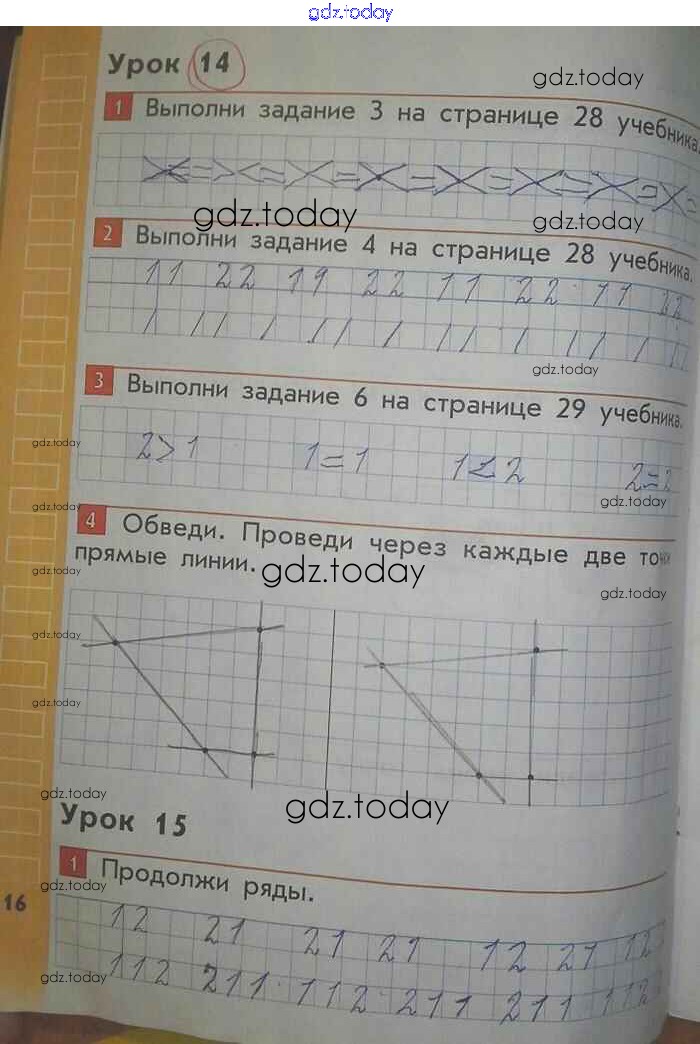 gdz.today
Урок 14
gdz.today
1 Выполни задание 3 на странице 28 учебника.
gdz.today gdz.today
2 Выполни задание 4 на странице 28 учебника.
11 22 11 22 11 22 11 22
/ // / // / // / // / //
gdz.today
3 Выполни задание 6 на странице 29 учебника.
gdz.today
2>1 1=1 1<2 2=2
gdz.today gdz.today
4 Обведи. Проведи через каждые две точки
прямые линии. gdz.today
gdz.today
gdz.today
gdz.today
gdz.today
gdz.today gdz.today
Урок 15
1 Продолжи ряды.
gdz.today
16
12 21 21 21 12 21 12
112 211 112 211 211 112
gdz.today